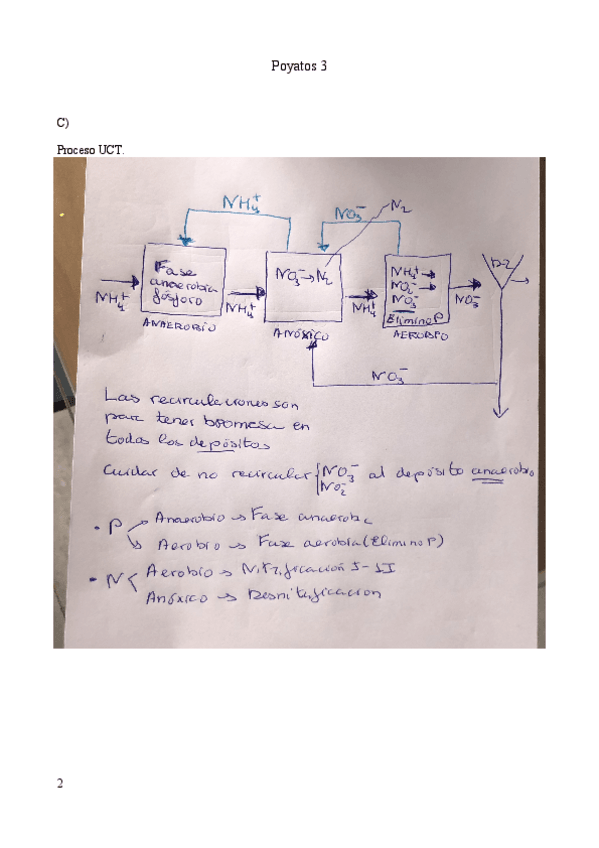 Poyatos 3
C)
Proceso UCT.
NH₄⁺
NO₃⁻
N₂
Fase
anaerobia
fósforo
NO₃⁻→N₂
NH₄⁺→
NO₂⁻→
NO₃⁻
Elimino P
D-2
NH₄⁺
NH₄⁺
NH₄⁺
NO₃⁻
ANAEROBIO
ANÓXICO
AEROBIO
NO₃⁻
Las recirculaciones son
para tener biomasa en
todos los depósitos
Cuidar de no recircular NO₃⁻ al depósito anaerobio
NO₂⁻
• P Anaerobio → Fase anaerobia
Aerobio → Fase aerobia (Elimino P)
• N Aerobio → Nitrificación I-II
Anóxico → Desnitrificacion
2